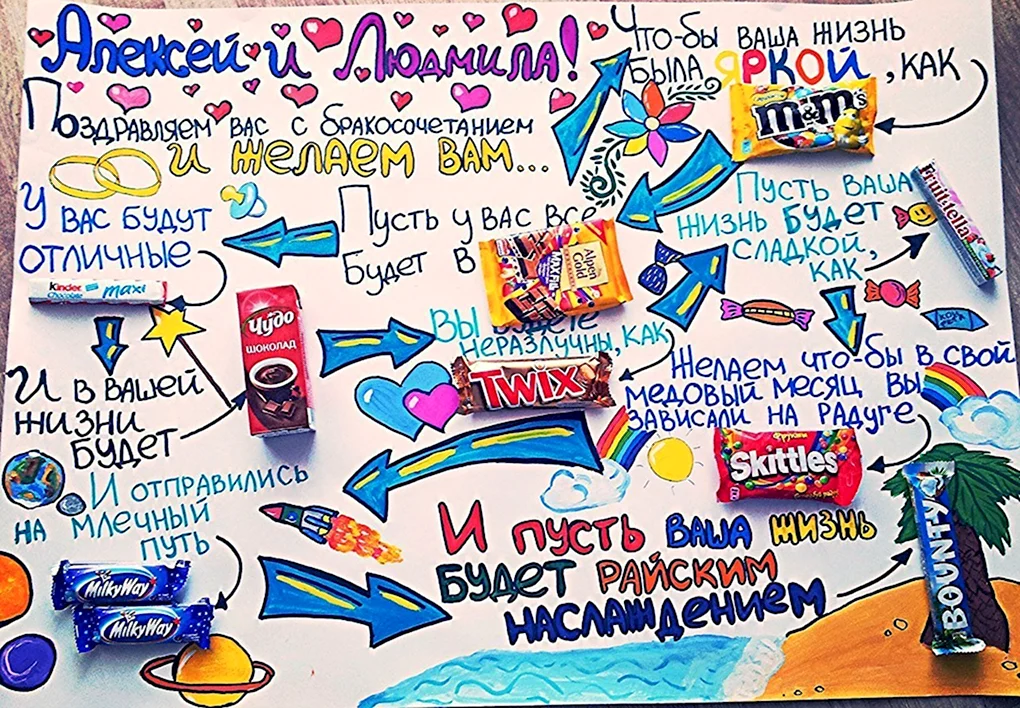 Алексей и Людмила!
Поздравляем вас с бракосочетанием
и желаем вам...
Что-бы ваша жизнь
была яркой, как
m&m's
Пусть у вас все
будет в
Alpen Gold
МАКСИ
У вас будут
отличные
Kinder
Chocolate
maxi
И в вашей
жизни
будет
Чудо
ШОКОЛАД
Вы будете
неразлучны, как
TWIX
Пусть ваша
жизнь будет
сладкой,
как
Fruit-tella
Желаем что-бы в свой
медовый месяц вы
зависали на радуге
Фрукты
Skittles
И отправились
на млечный
путь
MilkyWay
MilkyWay
И пусть ваша жизнь
будет райским
наслаждением
BOUNTY